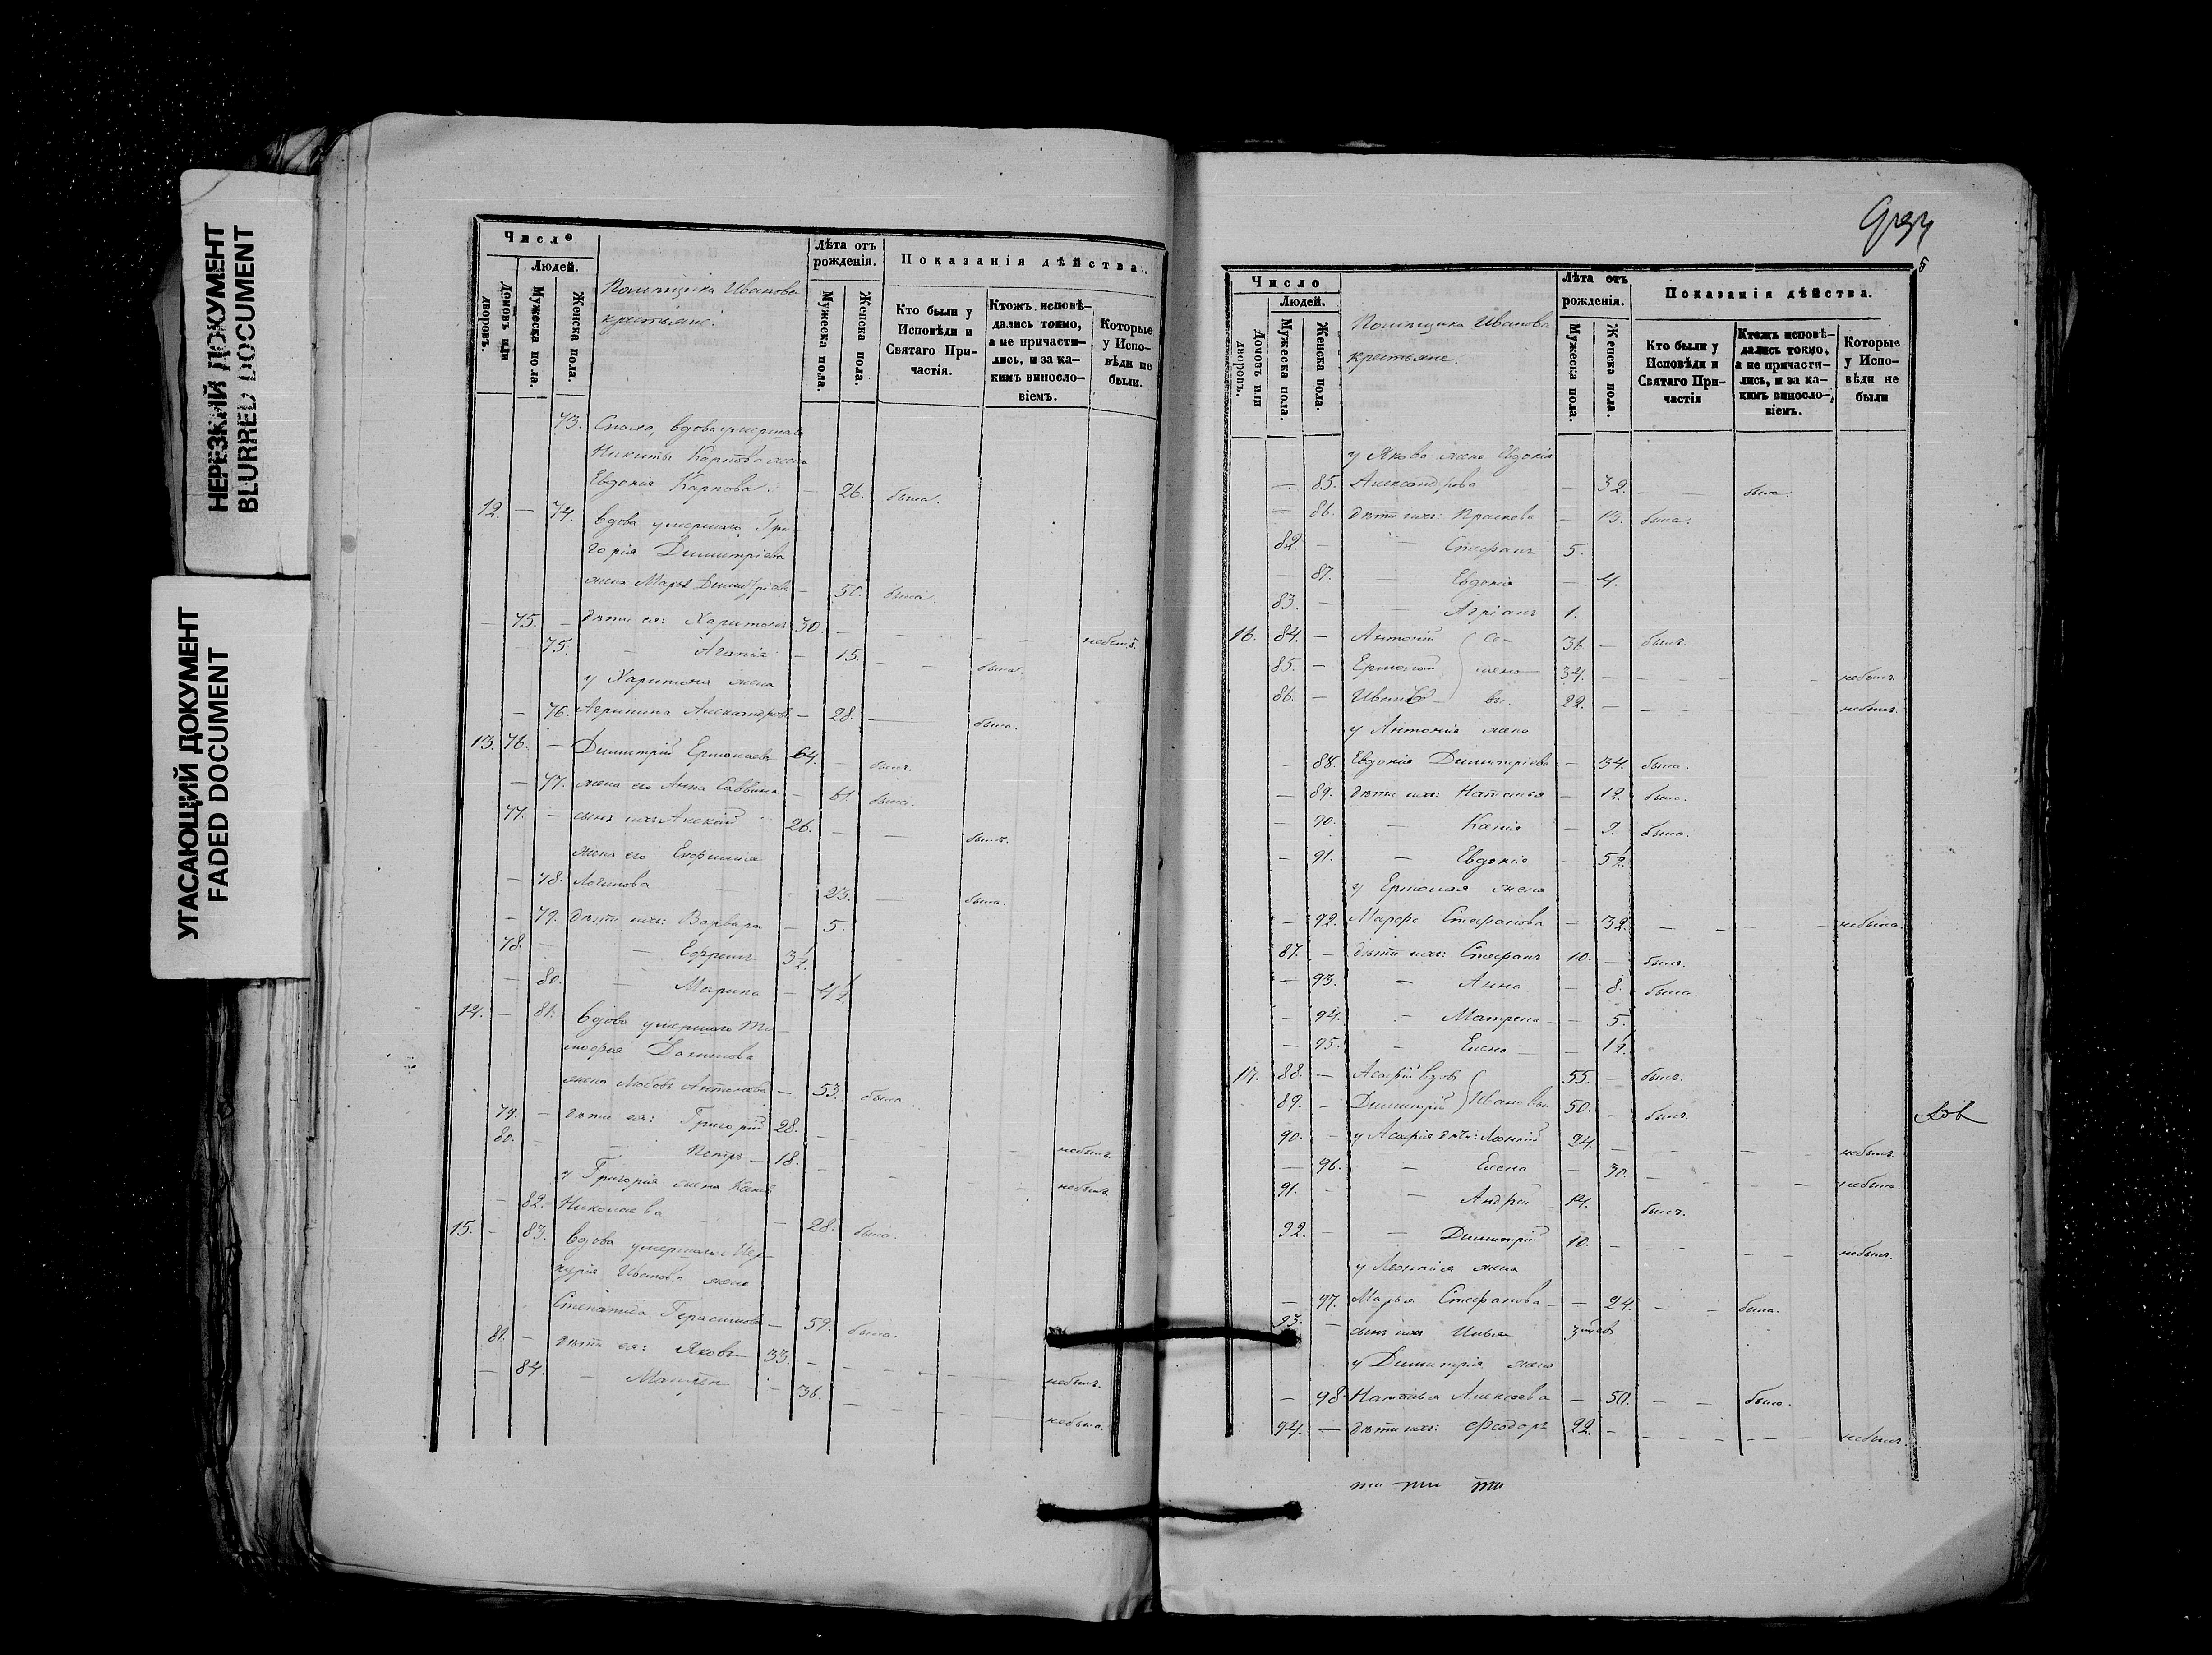 НЕРЕЗКИЙ ДОКУМЕНТ
BLURRED DOCUMENT
УГАСАЮЩИЙ ДОКУМЕНТ
FADED DOCUMENT
Число
Людей.
Домовъ или дворовъ.
Мужеска пола.
Женска пола.
Помѣщика Иванова
крестьяне.
Лѣта отъ рожденія.
Мужеска пола.
Женска пола.
Показанія дѣйства.
Кто были у Исповѣди и Святаго Причастія.
Ктожъ исповѣдались токмо, а не причастились, и за какимъ винословіемъ.
Которые у Исповѣди не были.
73. вдова умершаго
Никиты Карпова жена
Евдокія Карпова. — 26. была.
12. — 74. вдова умершаго Гри-
горія Димитріева
жена Марья Димитріева — 50. была.
— 75. — дѣти ея: Харитонъ 30. — небылъ.
75. — Агапія — 15. — была.
у Харитона жена
— 76. Агрипина Александрова — 28. — была.
13. 76. — Димитрій Ермолаевъ 64. — былъ.
— 77. жена его Анна Саввина — 61. была.
77. — сынъ ихъ Алексѣй 26. — — былъ.
жена его Евфимія
— 78. Логинова — 23. — была.
— 79. дѣти ихъ: Варвара — 5.
78. — — Ефремъ 3½.
— 80. — Марина — ½
14. — 81. вдова умершаго Ти-
моѳея Данилова
жена Любовь Антонова — 53. была.
79. — дѣти ея: Григорій 28. — небылъ.
80. — — Петръ — 18. — небылъ.
у Григорія жена
— 82. Николаева — 28. была.
15. — 83. вдова умершаго Мер-
курія Иванова жена
Степанида Герасимова — 59. была.
81. — дѣти ея: Яковъ 33. — небылъ.
— 84. — — 36. — небыла.
5
Число
Людей.
Домовъ или дворовъ.
Мужеска пола.
Женска пола.
Помѣщика Иванова
крестьяне.
Лѣта отъ рожденія.
Мужеска пола.
Женска пола.
Показанія дѣйства.
Кто были у Исповѣди и Святаго Причастія
Ктожъ исповѣдались токмо, а не причастились, и за какимъ винословіемъ.
Которые у Исповѣди не были
у Якова жена Евдокія
— 85. Александрова — 32. — — была.
— 86. дѣти ихъ: Праскева — 13. была.
82. — — Стефанъ 5.
— 87. — Евдокія — 4.
83. — — Адріанъ 1.
16. 84. — Антоній Се- 36. — былъ.
85. — Ермолай мено- 34. — небылъ.
86. — Иванъ вы. 22. — небылъ.
у Антонія жена
— 88. Евдокія Димитріева — 34. была.
— 89. дѣти ихъ: Наталья — 12. была.
— 90. — Ксенія — 9. была.
— 91. — Евдокія — 5½.
у Ермолая жена
— 92. Марѳа Стефанова — 32. — небыла.
87. — дѣти ихъ: Стефанъ 10. — былъ.
— 93. — Анна — 8. была.
— 94. — Матрена — 5.
— 95. — Елена — 1½.
17. 88. — вдов 55. — былъ.
89. — Димитрій Ивановы 50. — былъ.
90. — 24. — небылъ.
— 96. — Елена — 30. — небыла.
91. — — Андрей 14. былъ.
92. — — Димитрій 10. — небылъ.
у жена
— 97. Марья Стефанова — 24. — — была.
93. — сынъ ихъ Илья
у Димитрія жена
— 98. Наталья Алексеева — 50. — — была.
94. — дѣти ихъ: Ѳеодоръ 22. — небылъ.